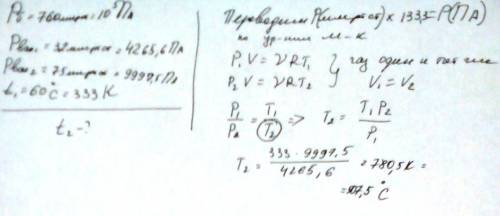 P₀ = 760 мм рт ст = 10⁵ Па
Pвак₁ = 32 мм рт ст = 4265,6 Па
Pвак₂ = 75 мм рт ст = 9997,5 Па
t₁ = 60°C = 333 K
t₂ - ?
Переводим P(мм рт ст) × 133,3 = P(Па)
по ур-нию М-К
P₁ V = νRT₁ } газ один и тот же
P₂ V = νRT₂ } V₁ = V₂
P₁/P₂ = T₁/T₂ => T₂ = T₁ P₂/P₁
T₂ = 333 · 9997,5/4265,6 = 780,5 K =
= 507,5 °C